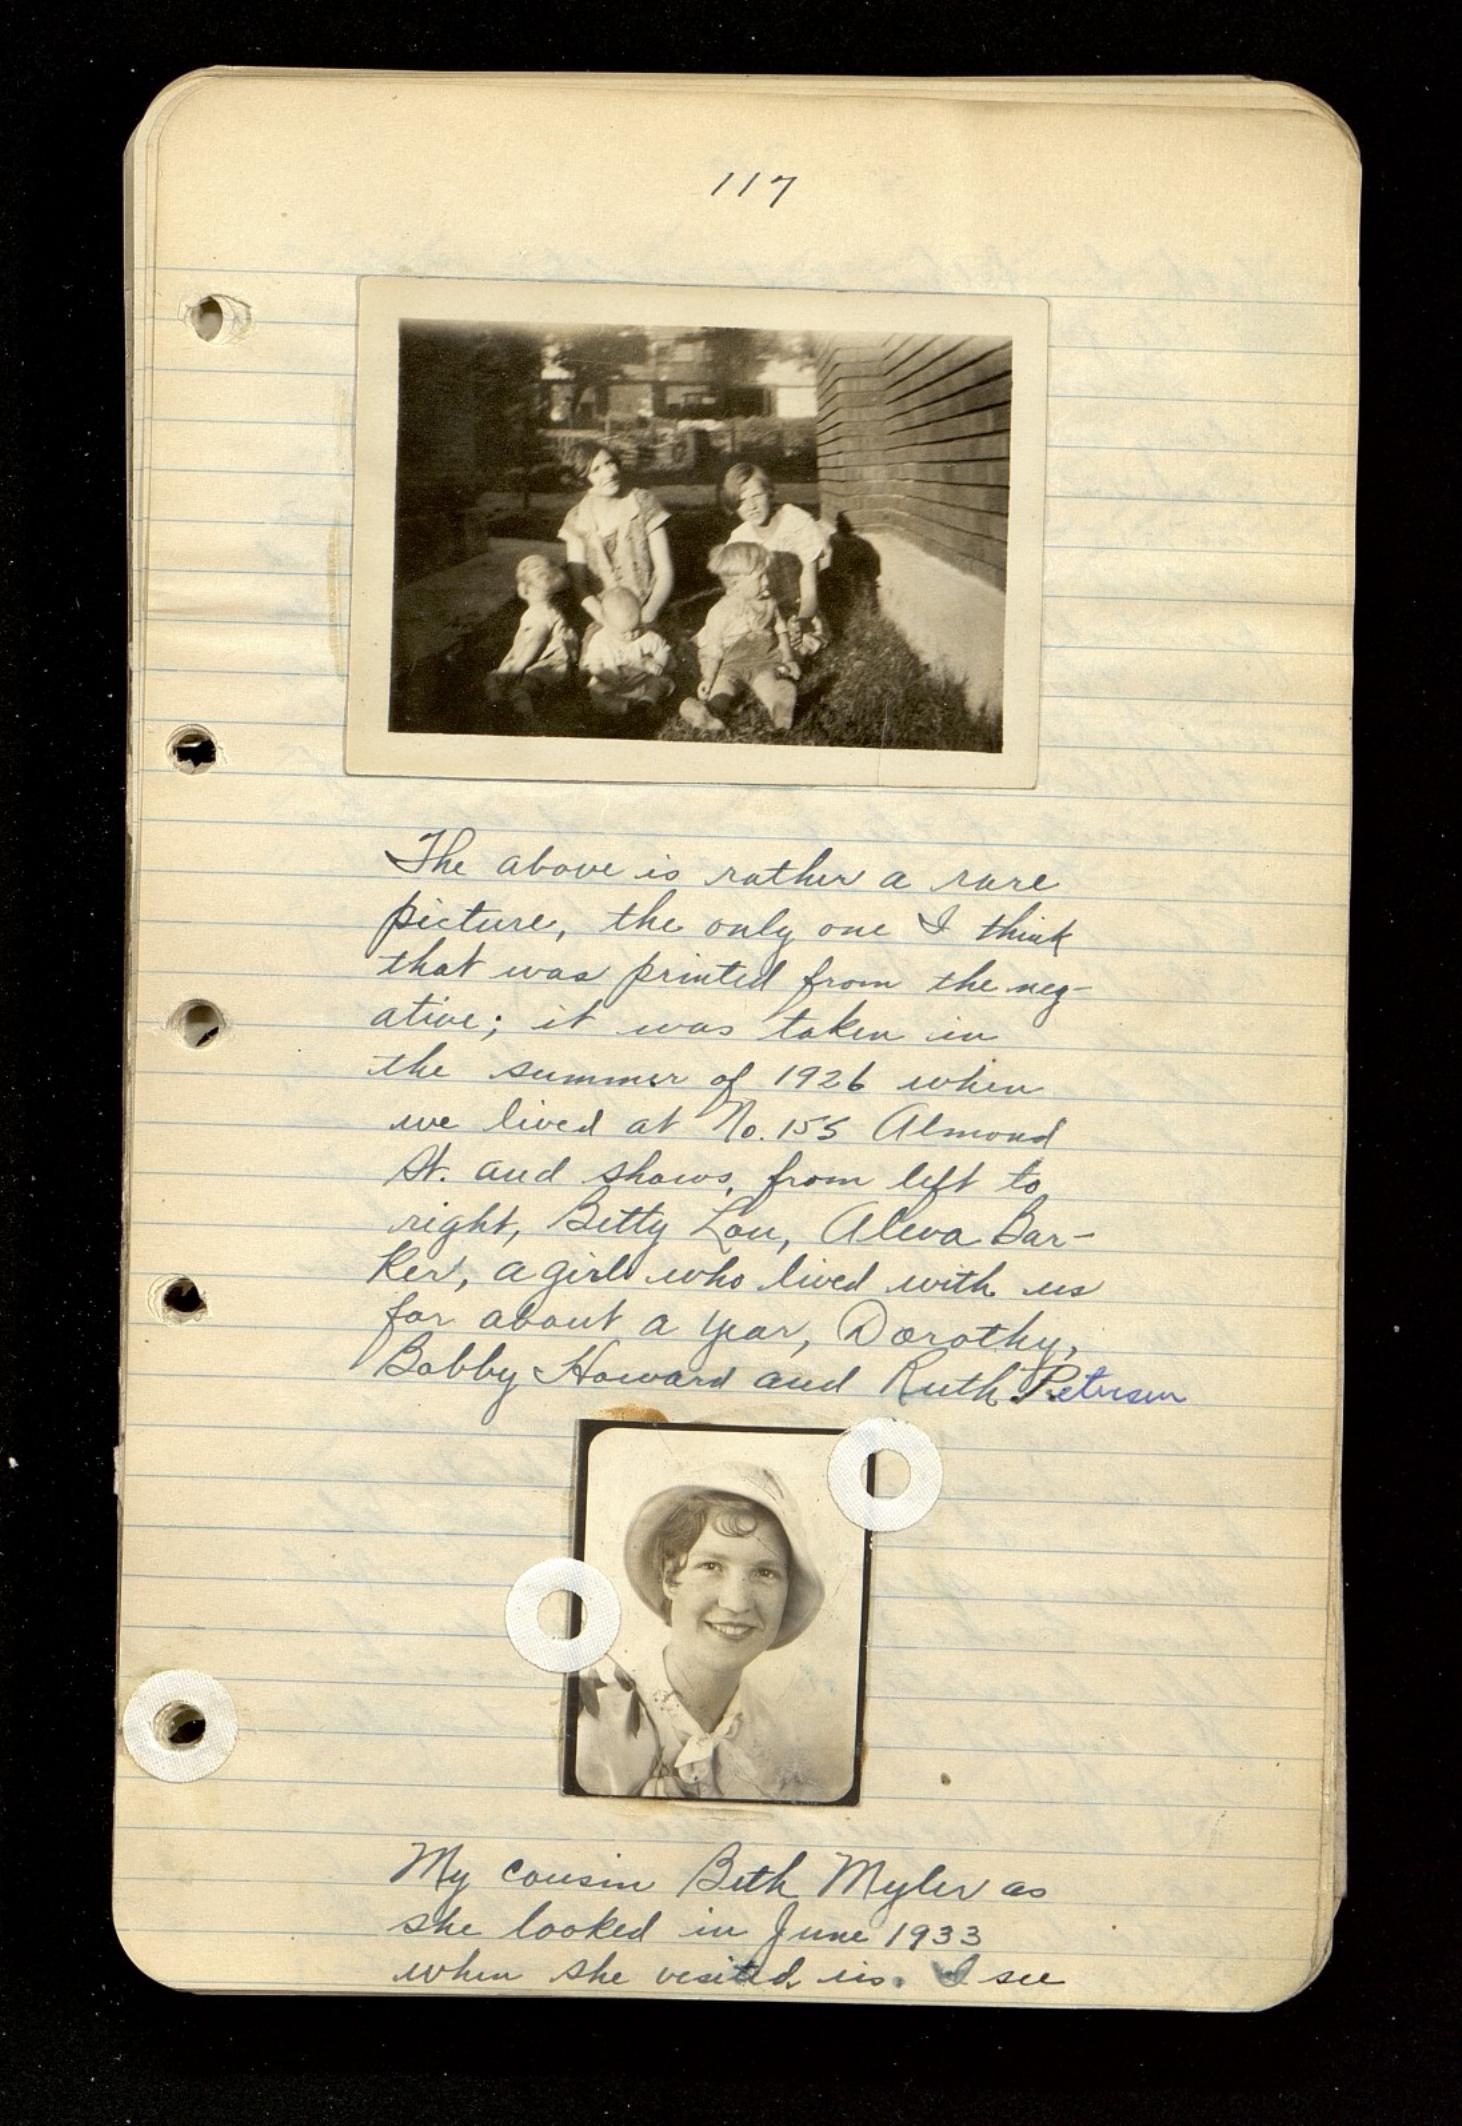 117
The above is rather a rare
picture, the only one I think
that was printed from the neg-
ative; it was taken in
the summer of 1926 when
we lived at No. 155 Almond
St. and shows, from left to
right, Betty Lou, Aleva Bar-
ker, a girl who lived with us
for about a year, Dorothy,
Bobby Howard and Ruth Petersen
My cousin Beth Myler as
she looked in June 1933
when she visited us. I see